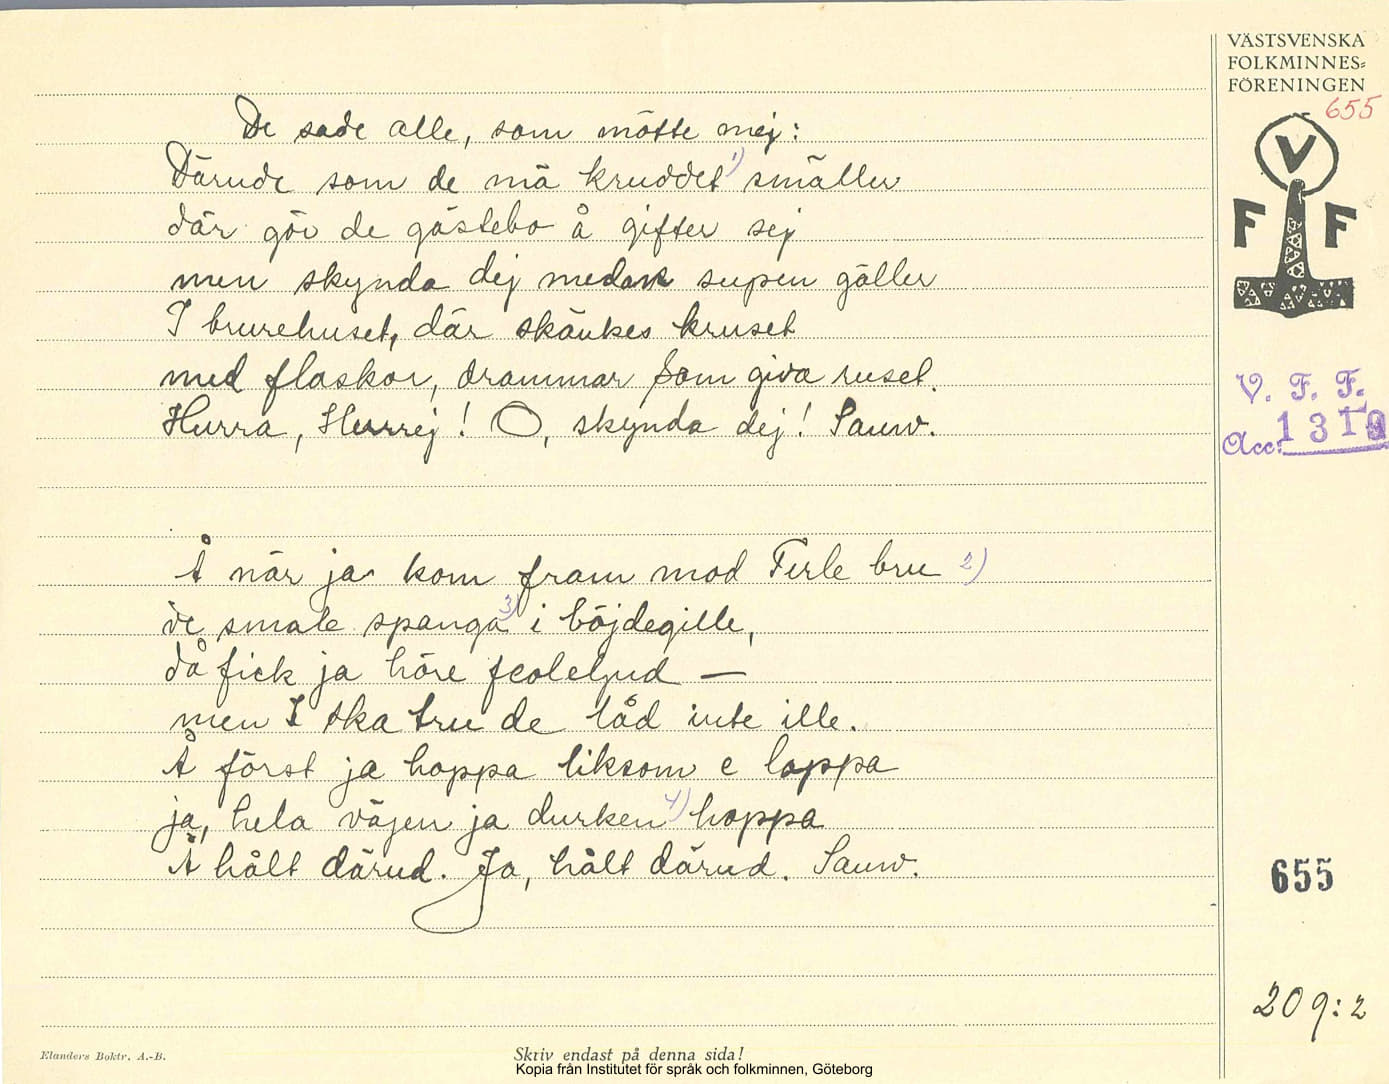 VÄSTSVENSKA
FOLKMINNES-
FÖRENINGEN
655
V
F F
V. F. F.
Acc:
De sade alle, som mötte mej:
Därude som de mä kruddet 1) smäller
där gör de gästebo å gifter sej
men skynda dej medan supen gäller
I brurehuset, där skänkes kruset
med flaskor, drammar som giva ruset.
Hurra, Hurrej! O, skynda dej! Samv.
Å när ja kom fram mod Ferle bru 2)
de smale spanga 3) i böjdegille,
då fick ja höre feoleljud —
men I ska tru de låd inte ille.
Å först ja hoppa liksom e loppa
ja, hela väjen ja durken 4) hoppa
Å hålt därud. Ja, hålt därud. Samv.
655
209:2
Elanders Boktr. A.-B.
Skriv endast på denna sida!
Kopia från Institutet för språk och folkminnen, Göteborg